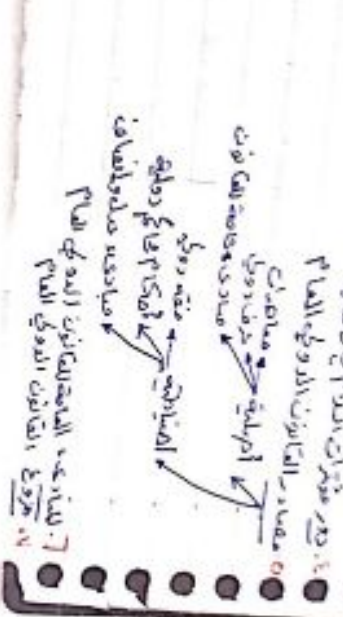 4. دور
5. مصادر القانون الدولي العام
أصلية
معاهدات
عرف دولي
مبادئ عامة للقانون
احتياطية
فقه دولي
أحكام محاكم دولية
مبادئ عدل وإنصاف
6. العامة للقانون الدولي العام
7. فروع القانون الدولي العام